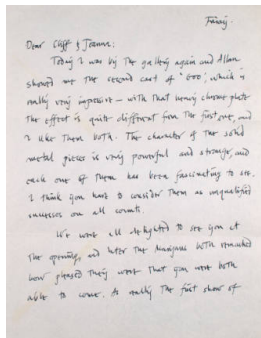 Friday
Dear Cliff & Joanna:
Today I was by the gallery again and Allan
showed me the second cast of "600", which is
really very impressive — with that heavy chrome plate
the effect is quite different from the first one, and
I like them both. The character of the solid
metal pieces is very powerful and strange, and
each one of them has been fascinating to see.
I think you have to consider them as unqualified
successes on all counts.
We were all delighted to see you at
the opening, and later the both remarked
how pleased they were that you were both
able to come. As really the first show of